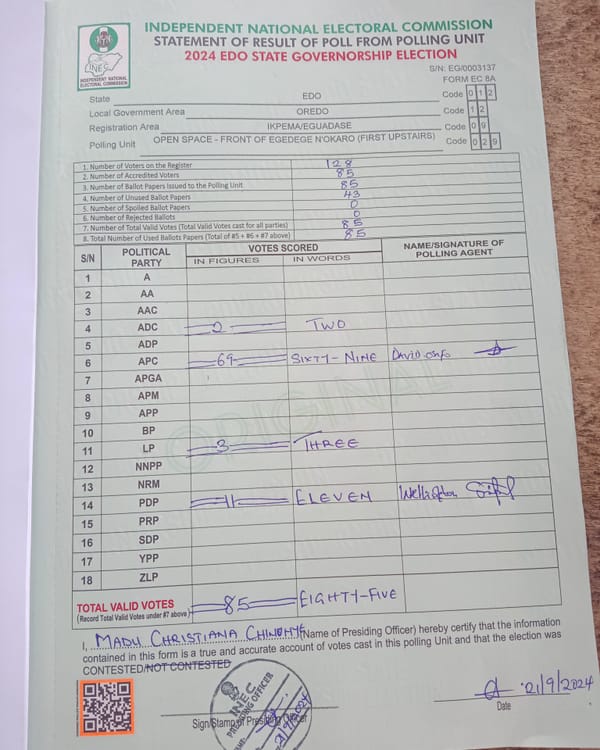 INDEPENDENT NATIONAL ELECTORAL COMMISSION
STATEMENT OF RESULT OF POLL FROM POLLING UNIT
2024 EDO STATE GOVERNORSHIP ELECTION
INEC
INDEPENDENT NATIONAL
ELECTORAL COMMISSION
S/N: EG/0003137
FORM EC 8A
State EDO Code 0 1 2
Local Government Area OREDO Code 1 2
Registration Area IKPEMA/EGUADASE Code 0 9
Polling Unit OPEN SPACE - FRONT OF EGEDEGE N'OKARO (FIRST UPSTAIRS) Code 0 2 9
1. Number of Voters on the Register 128
2. Number of Accredited Voters 85
3. Number of Ballot Papers Issued to the Polling Unit 85
4. Number of Unused Ballot Papers 43
5. Number of Spoiled Ballot Papers 0
6. Number of Rejected Ballots 0
7. Number of Total Valid Votes (Total Valid Votes cast for all parties) 85
8. Total Number of Used Ballots Papers (Total of #5 + #6 + #7 above) 85
S/N POLITICAL PARTY VOTES SCORED NAME/SIGNATURE OF POLLING AGENT
IN FIGURES IN WORDS
1 A
2 AA
3 AAC
4 ADC 2 TWO
5 ADP
6 APC 69 SIXTY-NINE David
7 APGA
8 APM
9 APP
10 BP
11 LP 3 THREE
12 NNPP
13 NRM
14 PDP 11 ELEVEN
15 PRP
16 SDP
17 YPP
18 ZLP
ORIGINAL
TOTAL VALID VOTES 85 EIGHTY-FIVE
(Record Total Valid Votes under #7 above)
I, MADU CHRISTIANA CHINONYE (Name of Presiding Officer) hereby certify that the information
contained in this form is a true and accurate account of votes cast in this polling Unit and that the election was
CONTESTED/NOT CONTESTED
INEC
PRESIDING OFFICER
21/9/2024
Sign/Stamp of Presiding Officer
21/9/2024
Date